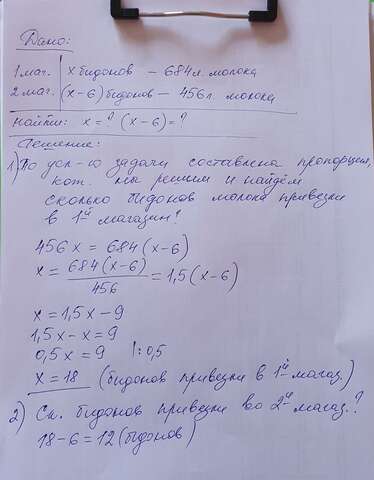 Дано:
1 маг. | x бидонов – 684 л. молока
2 маг. | (x-6) бидонов – 456 л. молока
Найти: x = ? (x-6) = ?
Решение:
1) По усл-ю задачи составлена пропорция,
кот. мы решим и найдём
сколько бидонов молока привезли
в 1й магазин?
456x = 684(x-6)
x = 684(x-6)/456 = 1,5(x-6)
x = 1,5x - 9
1,5x - x = 9
0,5x = 9 |:0,5
x = 18 (бидонов привезли в 1й магаз.)
2) Ск. бидонов привезли во 2й магаз.?
18-6 = 12 (бидонов)